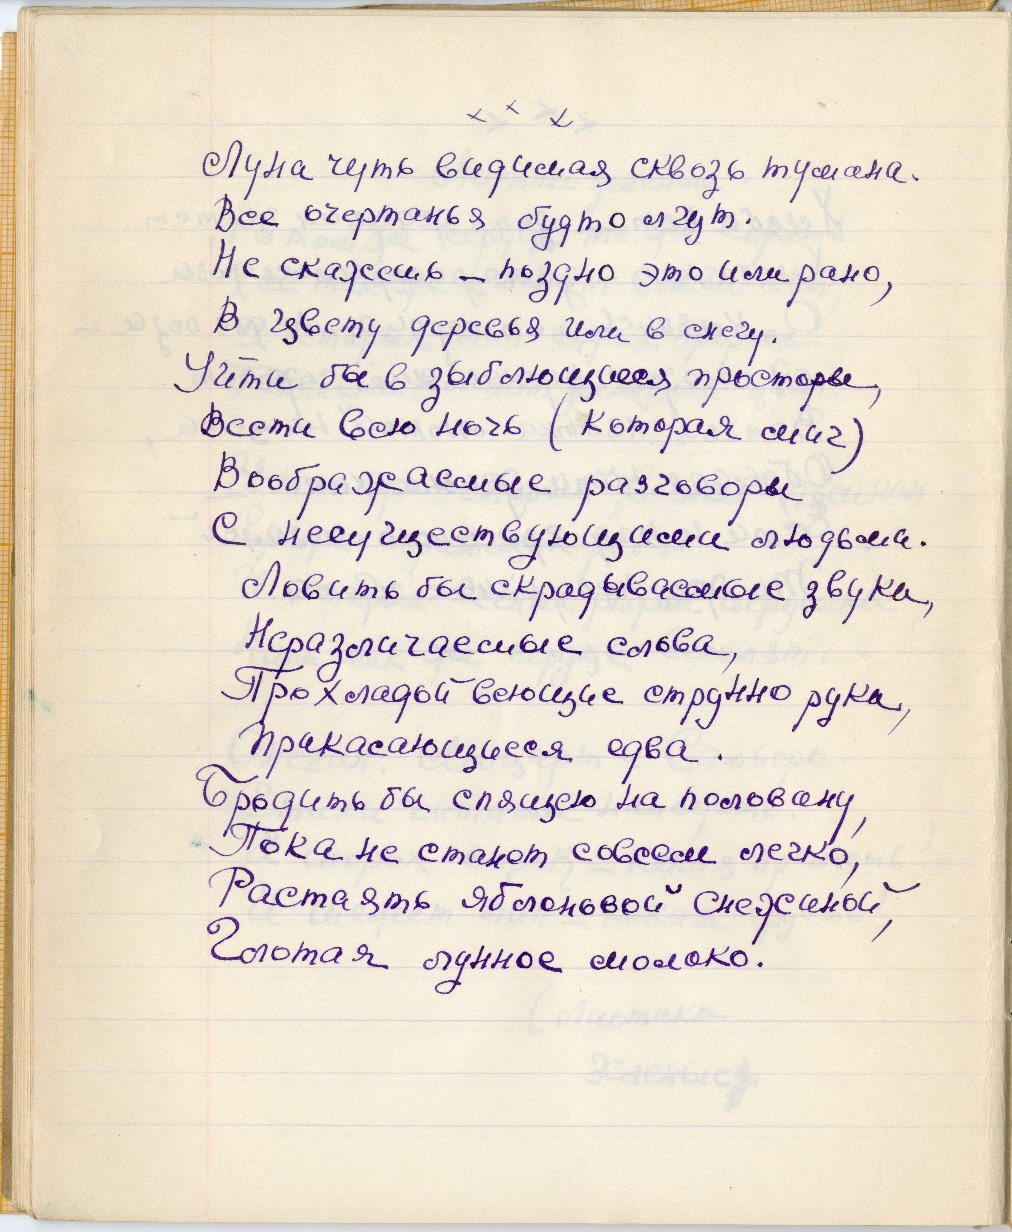 × × ×
Луна чуть видимая сквозь тумана.
Все очертанья будто лгут.
Не скажешь – поздно это или рано,
В цвету деревья или в снегу.
Уйти бы в зыблющиеся просторы,
Вести всю ночь (которая миг)
Воображаемые разговоры
С несуществующими людьми.
Ловить бы скрадываемые звуки,
Неразличаемые слова,
Прохладой веющие струнно руки,
Прикасающиеся едва.
Бродить бы спящею на половину,
Пока не станет совсем легко,
Растаять яблоновой снежиной,
Глотая лунное молоко.